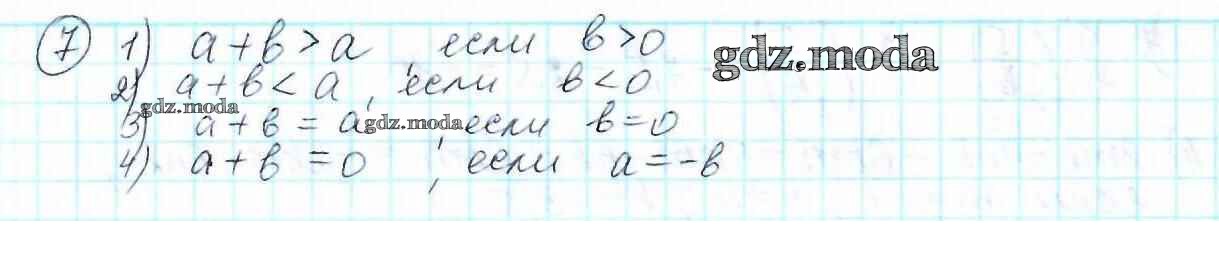 7 1) a + b > a, если b > 0 gdz.moda
2) a + b < a, если b < 0
gdz.moda
3) a + b = a gdz.moda если b = 0
4) a + b = 0, если a = -b